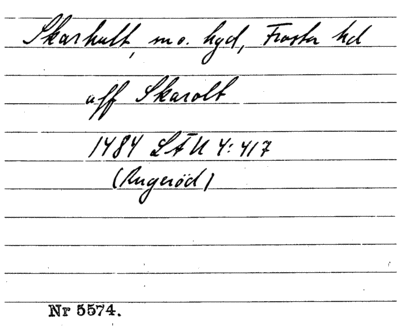 Skarhult, sn o. hgd, Frosta hd
aff Skarolt
1484 LÄU 4:417
(Rugeröd)
Nr 5574.